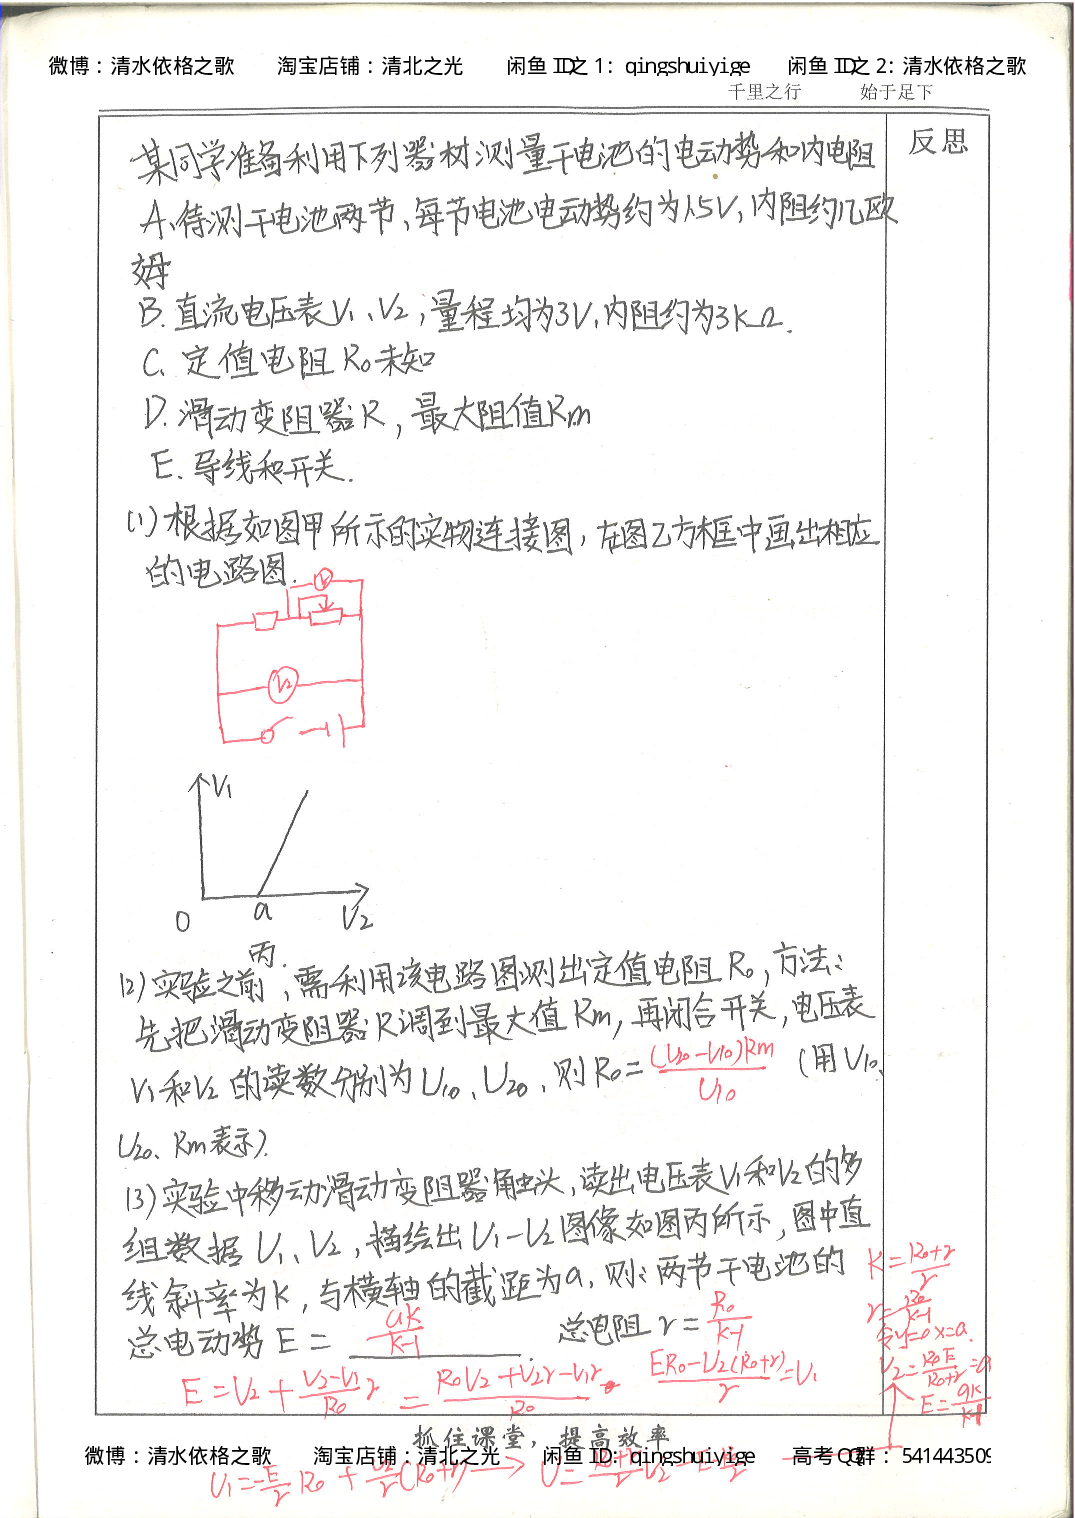 微博：清水依格之歌 淘宝店铺：清北之光 闲鱼ID之1：qingshuiyige 闲鱼ID之2：清水依格之歌
千里之行 始于足下
反思
某同学准备利用下列器材测量干电池的电动势和内电阻
A、待测干电池两节，每节电池电动势约为1.5V，内阻约几欧
姆
B. 直流电压表V₁、V₂，量程均为3V，内阻约为3kΩ.
C、定值电阻R₀未知
D. 滑动变阻器R，最大阻值Rm
E. 导线和开关.
(1)根据如图甲所示的实物连接图，在图乙方框中画出相应
的电路图.
V₁
V₂
V₁
O a V₂
丙.
(2)实验之前，需利用该电路图测出定值电阻R₀，方法：
先把滑动变阻器R调到最大值Rm，再闭合开关，电压表
V₁和V₂的读数分别为U₁₀、U₂₀，则R₀=(U₂₀-U₁₀)Rm/U₁₀ (用U₁₀、
U₂₀、Rm表示).
(3)实验中移动滑动变阻器触头，读出电压表V₁和V₂的多
组数据U₁、U₂，描绘出U₁-U₂图像如图丙所示，图中直
线斜率为K，与横轴的截距为a，则：两节干电池的
总电动势E=ak/(k-1) 总电阻r=R₀/(k-1)
K=(R₀+r)/r
r=R₀/(k-1)
令y=0 x=a.
U₂=R₀E/(R₀+r)=a
E=ak/(k-1)
E=U₂+(U₂-U₁)/R₀ r=(R₀U₂+U₂r-U₁r)/R₀ (ER₀-U₂(R₀+r))/r=U₁
抓住课堂，提高效率
微博：清水依格之歌 淘宝店铺：清北之光 闲鱼ID：qingshuiyige 高考QQ群：541443509
U₁=-E/r R₀+U₂/r(R₀+r)